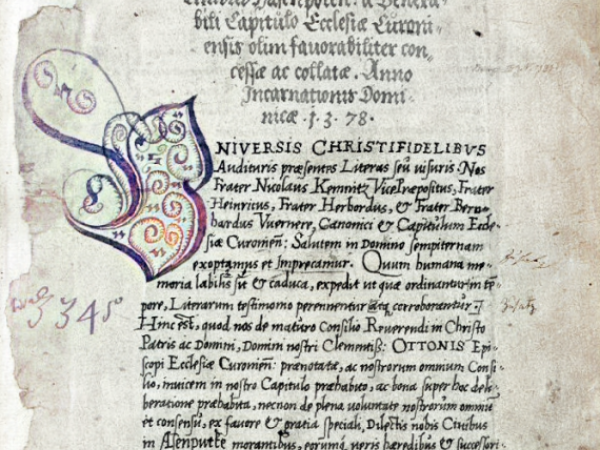 bili Capitulo Ecclesiæ Curoni=
ensis olim fauorabiliter con,
cessæ ac collatæ. Anno
Incarnationis Domi-
nicæ .1.3.78.
NIVERSIS CHRISTIFIDELIBVS
Audituris præsentes Literas seu uisuris. Nos
Frater Nicolaus Kemnitz VicePræpositus, Frater
Heinricus, Frater Herbordus, & Frater Bern-
hardus Vuernere, Canonici & Capitulum Eccle-
siæ Curonien: Salutem in Domino sempiternam
exoptamus et Imprecamur. Quum humana me-
moria labilis sit & caduca, expedit ut quæ ordinantur in tem
pore, Literarum testimonio perennentur atq corroborantur.
Hinc est, quod nos de maturo Consilio Reuerendi in Christo
Patris ac Domini, Domini nostri Clementiss: OTTONIS Epi-
scopi Ecclesiæ Curonien: prænotatæ, ac nostrorum omnium Consi-
lio, inuicem in nostro Capitulo præhabito, ac bona super hoc deli-
beratione præhabita, necnon de plena voluntate nostrorum omniū
et consensu, ex fauore & gratia speciali, Dilectis nobis Ciuibus
in Asenputte morantibus, eorumq ueris hæredibus & successori-
3345